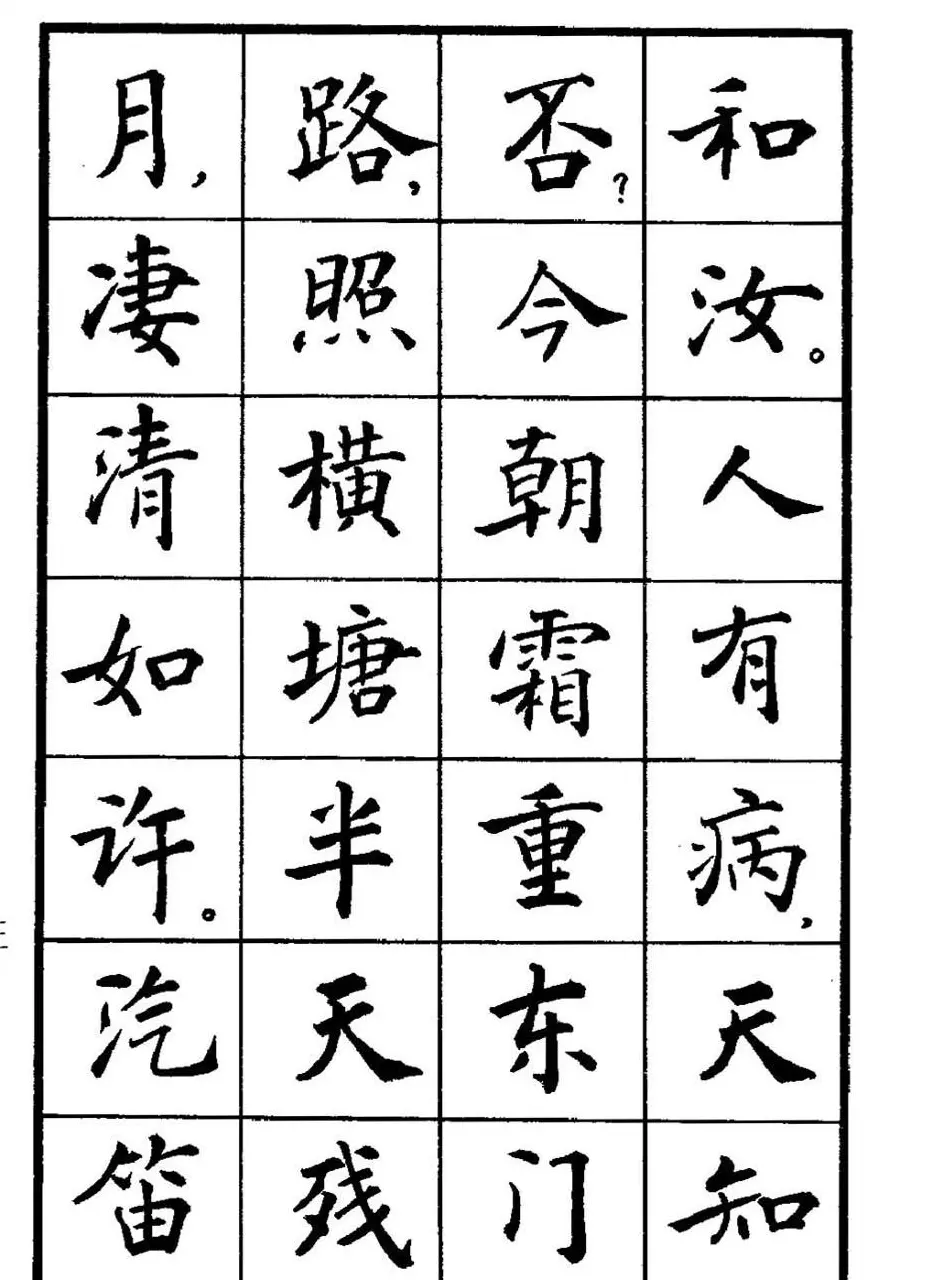 和汝。人有病，天知
否？今朝霜重东门
路，照横塘半天残
月，凄清如许。汽笛